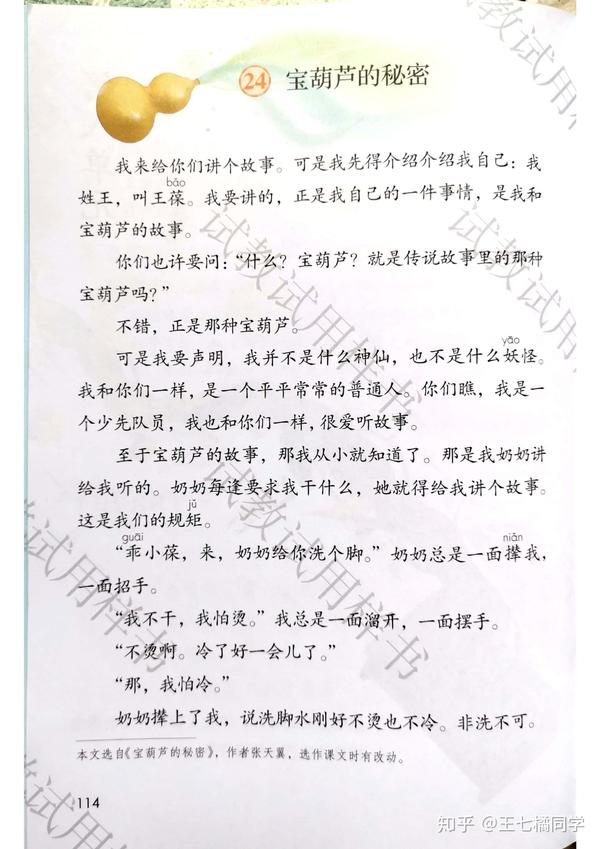 24 宝葫芦的秘密
我来给你们讲个故事。可是我先得介绍介绍我自己：我
bǎo
姓王，叫王葆。我要讲的，正是我自己的一件事情，是我和
宝葫芦的故事。
你们也许要问：“什么？宝葫芦？就是传说故事里的那种
宝葫芦吗？”
不错，正是那种宝葫芦。
yāo
可是我要声明，我并不是什么神仙，也不是什么妖怪。
我和你们一样，是一个平平常常的普通人。你们瞧，我是一
个少先队员，我也和你们一样，很爱听故事。
至于宝葫芦的故事，那我从小就知道了。那是我奶奶讲
给我听的。奶奶每逢要求我干什么，她就得给我讲个故事。
jǔ
这是我们的规矩。
guāi niǎn
“乖小葆，来，奶奶给你洗个脚。”奶奶总是一面撵我，
一面招手。
“我不干，我怕烫。”我总是一面溜开，一面摆手。
“不烫啊。冷了好一会儿了。”
“那，我怕冷。”
奶奶撵上了我，说洗脚水刚好不烫也不冷。非洗不可。
本文选自《宝葫芦的秘密》，作者张天翼，选作课文时有改动。
114
知乎 @王七橘同学
试教试用样书
试教试用样书
试教试用样书
试教试用样书